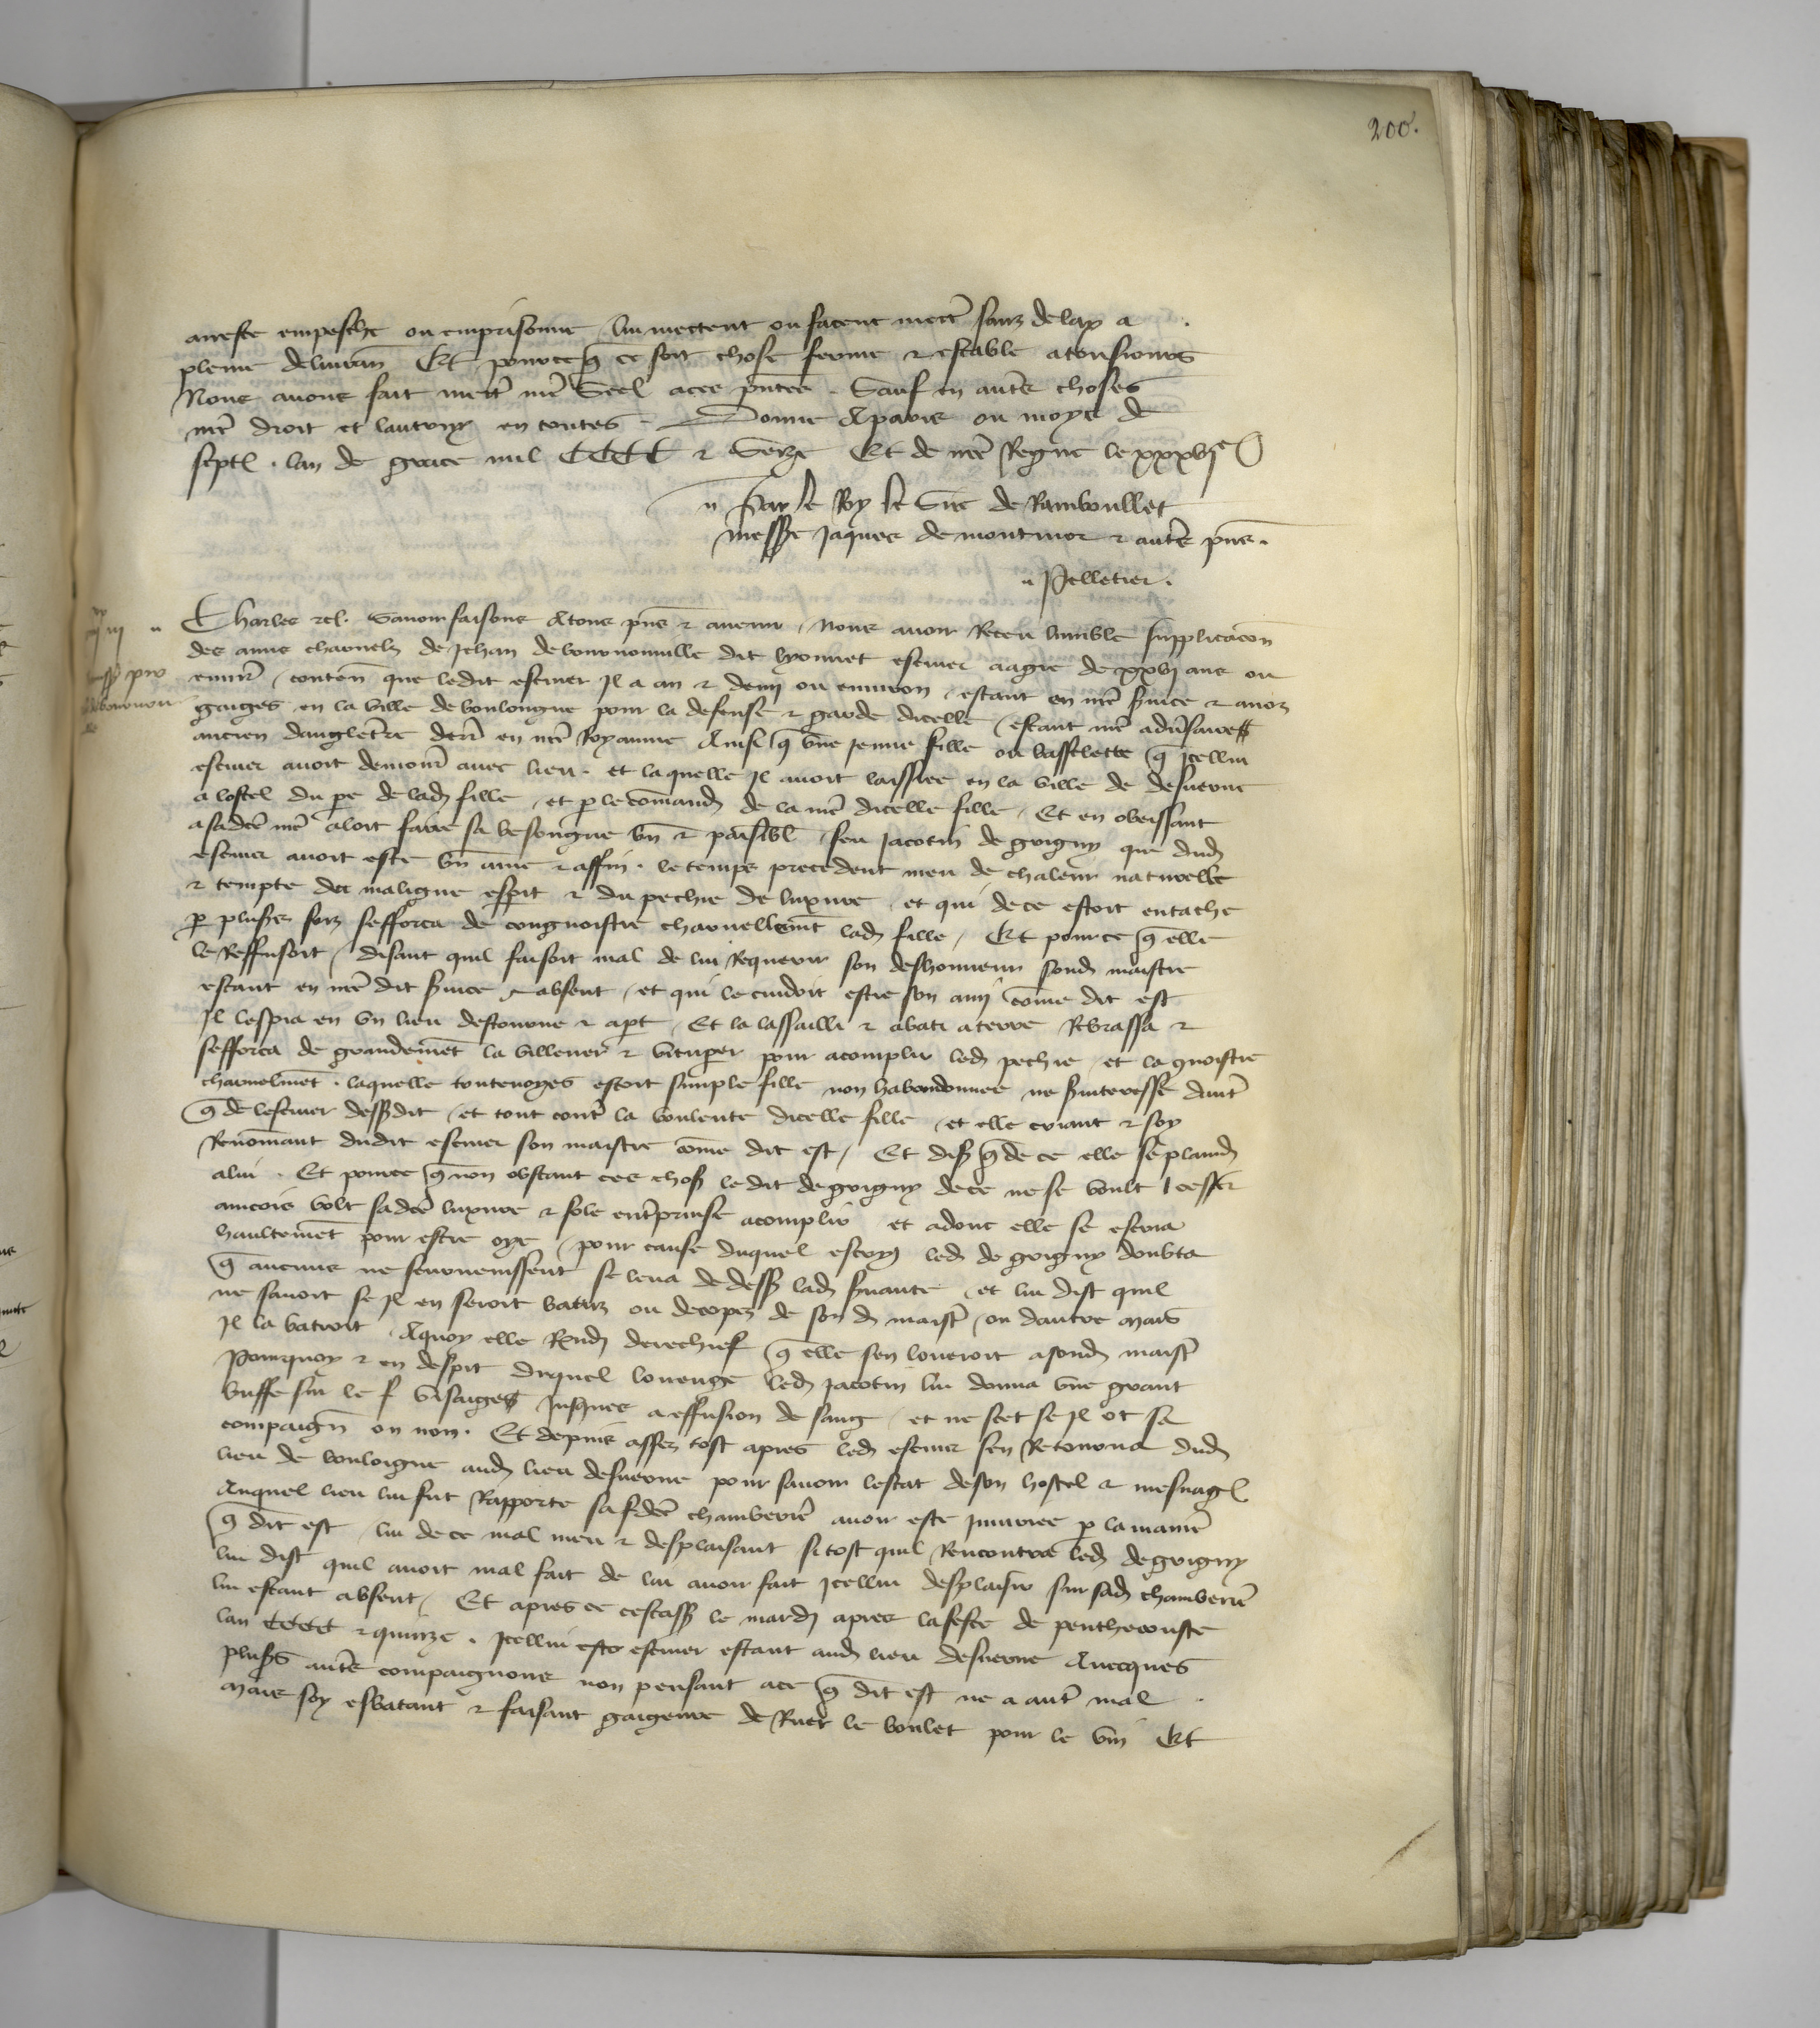 200.
arreste empeschie ou emprisonne lui mectent ou facent mectr̄ sanz delay a
pleine deliuran̄ Et pource q̄ ce soit chose ferme & estable atousiours
Nous auons fait mettr̄ nr̄e Seel aces p̄ntes . Sauf en autr̄s choses
nr̄e droit et lautruy en toutes Donne Aparis ou moys de
septē . lan de grace mil CCCC & Seize Et de nr̄e Regne le xxxvjᵉ
Par le Roy le Sire de Rambouillet
messr̄e Jaques de montmor & autr̄s pn̄s .
Pelletier .
Charles &c̄ . Sauoir faisons Atous pn̄s & auenir , Nous auoir Receu lumble supplicacōn
des amis charnelz de Jehan de bournonuille dit lyonnet escuier aagie de xxvj ans ou
enuirō , conten̄ que ledit escuier Jl a an & demj ou enuiron , estant en nr̄e s̄uice & anoz
gaiges en la ville de boulongne pour la defense & garde dicelle estant nr̄e adūsaire
ancien dangletr̄re dern̄ en nr̄e Royaume Ainsi q̄ vne jeune fille ou basselette q̄ jcellui
escuier auoit demour̄ auec lieu . et laquelle Jl auoit laissiee en la ville de desurene
a lostel du p̄e de lad fille , et p̄ le com̄and de la mēe dicelle fille , Et en obeissant
asadc̄e mēe aloit faire sa besongne bn̄ & paisibl̄ , feu Jacotin de grigny que dud
escuier auoit este bn̄ ame & affin . le temps precedent meu de chaleur naturelle
& tempte du maligne esp̄it & du pechie de luxure , et qui de ce estoit entachie
p̄ plus̄rs foiz sefforca de congnoistre charnellemēt lad fille , Et pource q̄ elle
le Reffusoit , disant quil faisoit mal de lui Requerir son deshonneur sond maistre
estant en nr̄e dit s̄uice & absent , et qui le cuidoit estre son amj com̄e dit est
Jl lespia en vn lieu destourne & apt̄ , Et la lassailli & abati aterre Rebrassa &
sefforca de grandemēt la villener & vitup̄er pour acomplir led pechie , et la q̄noistre
charnelmēt . laquelle toutesuoyes estoit simple fille non habandonnee ne s̄uiteresse dautr̄
q̄ de lescuier dess̄dit , et tout contr̄ la voulente dicelle fille , et elle criant & soy
Renom̄ant dudit escuier son maistre com̄e dit est , Et dis̄ q̄ de ce elle se plaind
a lui . Et pource q̄ non obstant ces chos̄ le dit de grigny de ce ne se voult cesser
aincois volt sadc̄e luxure & fole entr̄prinse acomplir et adonc elle se escria
haultemēt pour estre oye , pour cause duquel escry led de grigny doubta
q̄ aucuns ne seuruenissent se leua de dess̄ lad s̄uante , et lui dist quil
ne sauoit se Jl en seroit batuz ou decopez de son d maistr̄ , ou dautre mais
Jl la batroit . Aquoy elle Rn̄d derechief q̄ elle sen loueroit asond maistr̄
Pourquoy & en despit duquel louenge led Jacotin lui donna vne grant
buffe sur le visaiges Jusques a effusion de sang , et ne scet se Jl ot sa
compaign̄ ou non . Et depuis assez tost apres led escuier sen Retourna dud
lieu de bouloigne aud lieu desurene pour sauoir lestat de son hostel & mesnagē
Auquel lieu lui fut Rapporte sa sdc̄e chamberier̄ auoir este jniuriee p̄ la manier̄
q̄ dit est , lui de ce mal meu & desplaisant si tost quil Rencontra led de grigny
lui dist quil auoit mal fait de lui auoir fait jcellui desplaisir sur sad chamberier̄
lui estant absent , Et apres ce cestass̄ le mard apres la feste de penthecouste
lan CCCC & quinze . Jcellui escuier estant aud lieu desurene Auecques
plus̄rs autr̄s compaignons non pensant ace q̄ dit est ne a autr̄ mal
Mais soy esbatant & faisant gaigeure de Ruer le boulet pour le vin Et